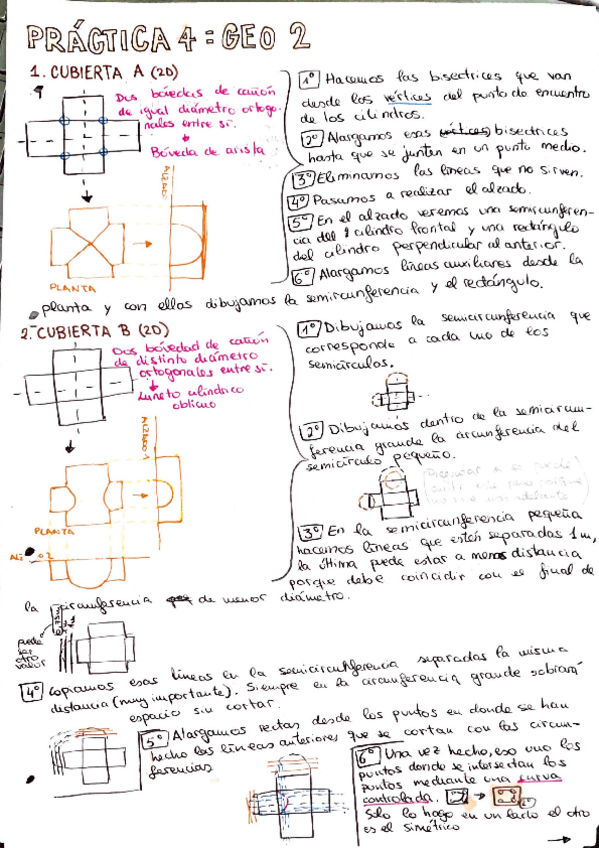 PRÁCTICA 4 : GEO 2
1. CUBIERTA A (2D)
Dos bóvedas de cañón
de igual diámetro ortogo-
nales entre sí.
Bóveda de arista
ALZADO
PLANTA
1º Hacemos las bisectrices que van
desde los vértices del punto de encuentro
de los cilindros.
2º Alargamos esas bisectrices
hasta que se junten en un punto medio.
3º Eliminamos las líneas que no sirven.
4º Pasamos a realizar el alzado.
5º En el alzado veremos una semicircunferen-
cia del cilindro frontal y una rectángulo
del cilindro perpendicular al anterior.
6º Alargamos líneas auxiliares desde la
planta y con ellas dibujamos la semicircunferencia y el rectángulo.
2.- CUBIERTA B (2D)
Dos bóvedad de cañón
de distinto diámetro
ortogonales entre sí.
Luneto cilíndrico
oblicuo
ALZADO 1
PLANTA
1º Dibujamos la semicircunferencia que
corresponde a cada uno de los
semicírculos.
2º Dibujamos dentro de la semicircun-
ferencia grande la circunferencia del
semicírculo pequeño.
3º En la semicircunferencia pequeña
hacemos líneas que estén separadas 1m,
la última puede estar a menos distancia
porque debe coincidir con el final de
la circunferencia de menor diámetro.
puede
ser
otro
valor
4º Copiamos esas líneas en la semicircunferencia separadas la misma
distancia (muy importante). Siempre en la circunferencia grande sobrará
espacio sin cortar.
5º Alargamos rectas desde los puntos en donde se han
hecho las líneas anteriores que se cortan con las circun-
ferencias
6º Una vez hecho, eso uno los
puntos donde se intersectan los
puntos mediante una curva
controlada.
Solo lo hago en un lado el otro
es el simétrico